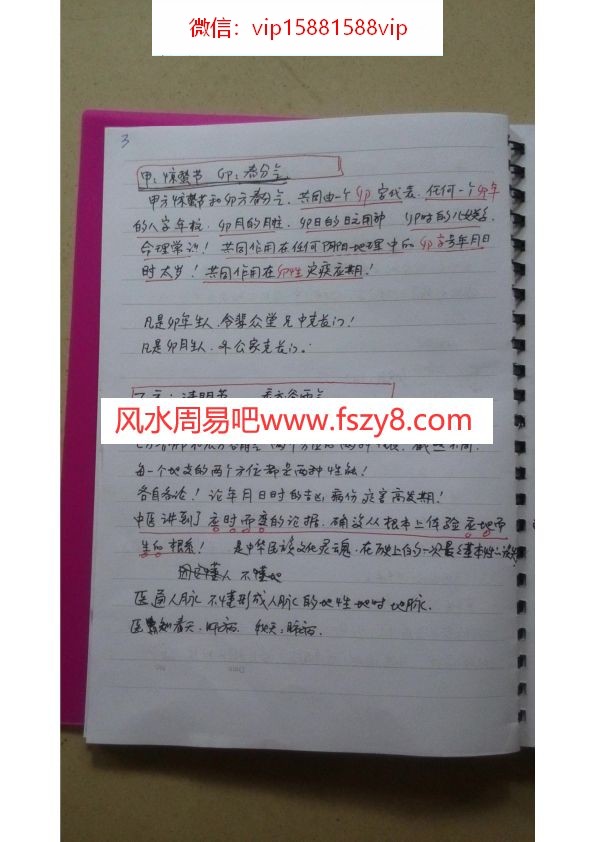 微信：vip15881588vip
3
甲：惊蛰节 卯：春分气
甲方惊蛰节和卯方春分气，共同由一个卯字代表，任何一个卯年
的八字年柱，卯月的月柱，卯日的日元用神 卯时的
命理常识！共同作用在任何阴阳地理中的卯字号年月日
时太岁！共同作用在卯性灾疾应期！
凡是卯年生人，令辈众堂兄中克长门！
凡是卯月生人，年公家克长门。
清明节
风水周易吧www.fszy8.com
每一个地支的两个方位都是两种性能！
各自各论！论年月日时的吉凶病伤灾害高发期！
中医讲到了应时而变的论据，确没从根本上体验应地而
生的根系！ 是中华民族文化灵魂，在历史上的一次最基本性
因宝懂人 不懂地
医通人脉 不懂形成人脉的地性地时地脉，
医知春天：肝病， 秋天：肺病，